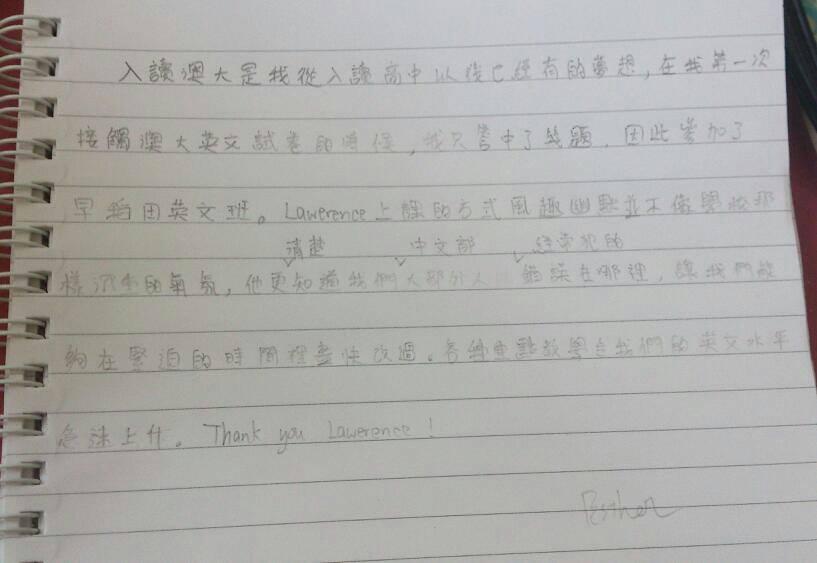 入讀澳大是我從入讀高中以後已經有的夢想，在我第一次
接觸澳大英文試卷的時候，我只答中了幾題，因此參加了
早稻田英文班。Lawerence上課的方式風趣幽默並不像學校那
清楚 中文部 經常犯的
樣沉重的氣氛，他更知道我們大部分人 錯誤在哪裡，讓我們能
夠在緊迫的時間裡盡快改過。各種重點教學令我們的英文水平
急速上升。Thank you Lawerence!
Esther